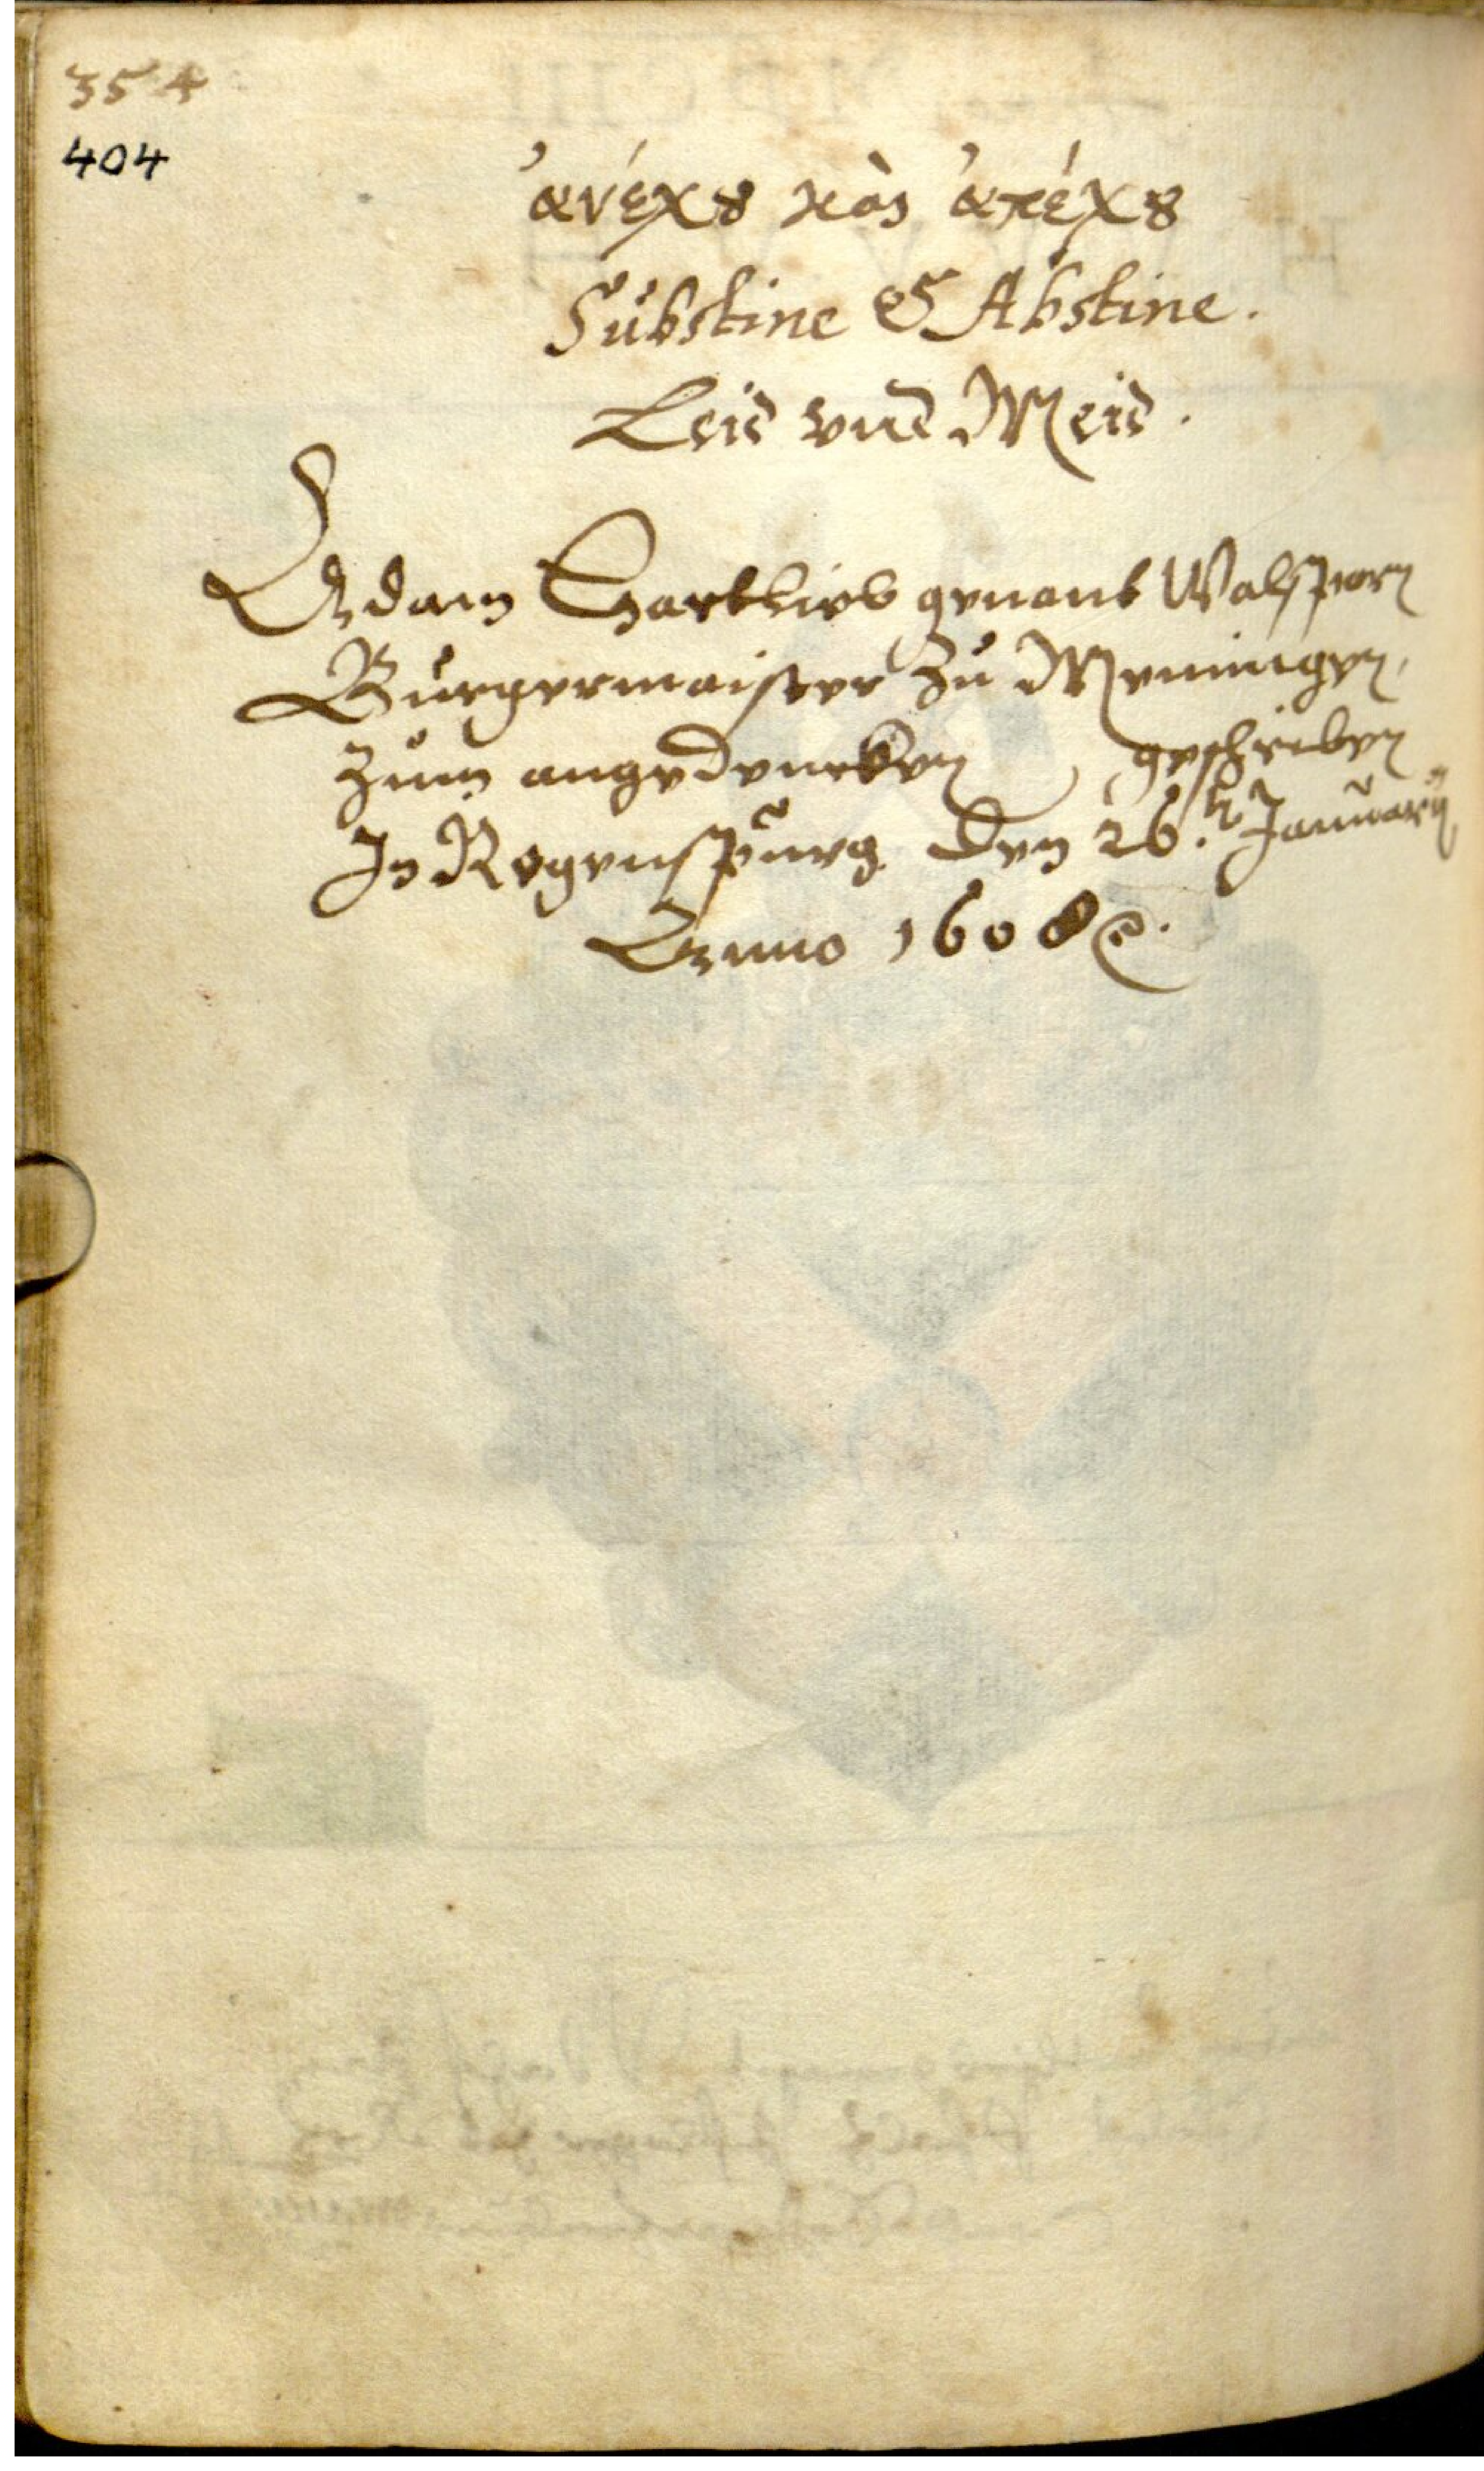 354
404
ἀνέχȣ καὶ ἀπέχȣ
Substine & Abstine.
Leid vnd Meid.
Adam Hartlieb genant Walsporn
Burgermaister zu Memingen,
zum angedencken geschrieben
In Regenspurg den 26. Januarij
Anno 1608